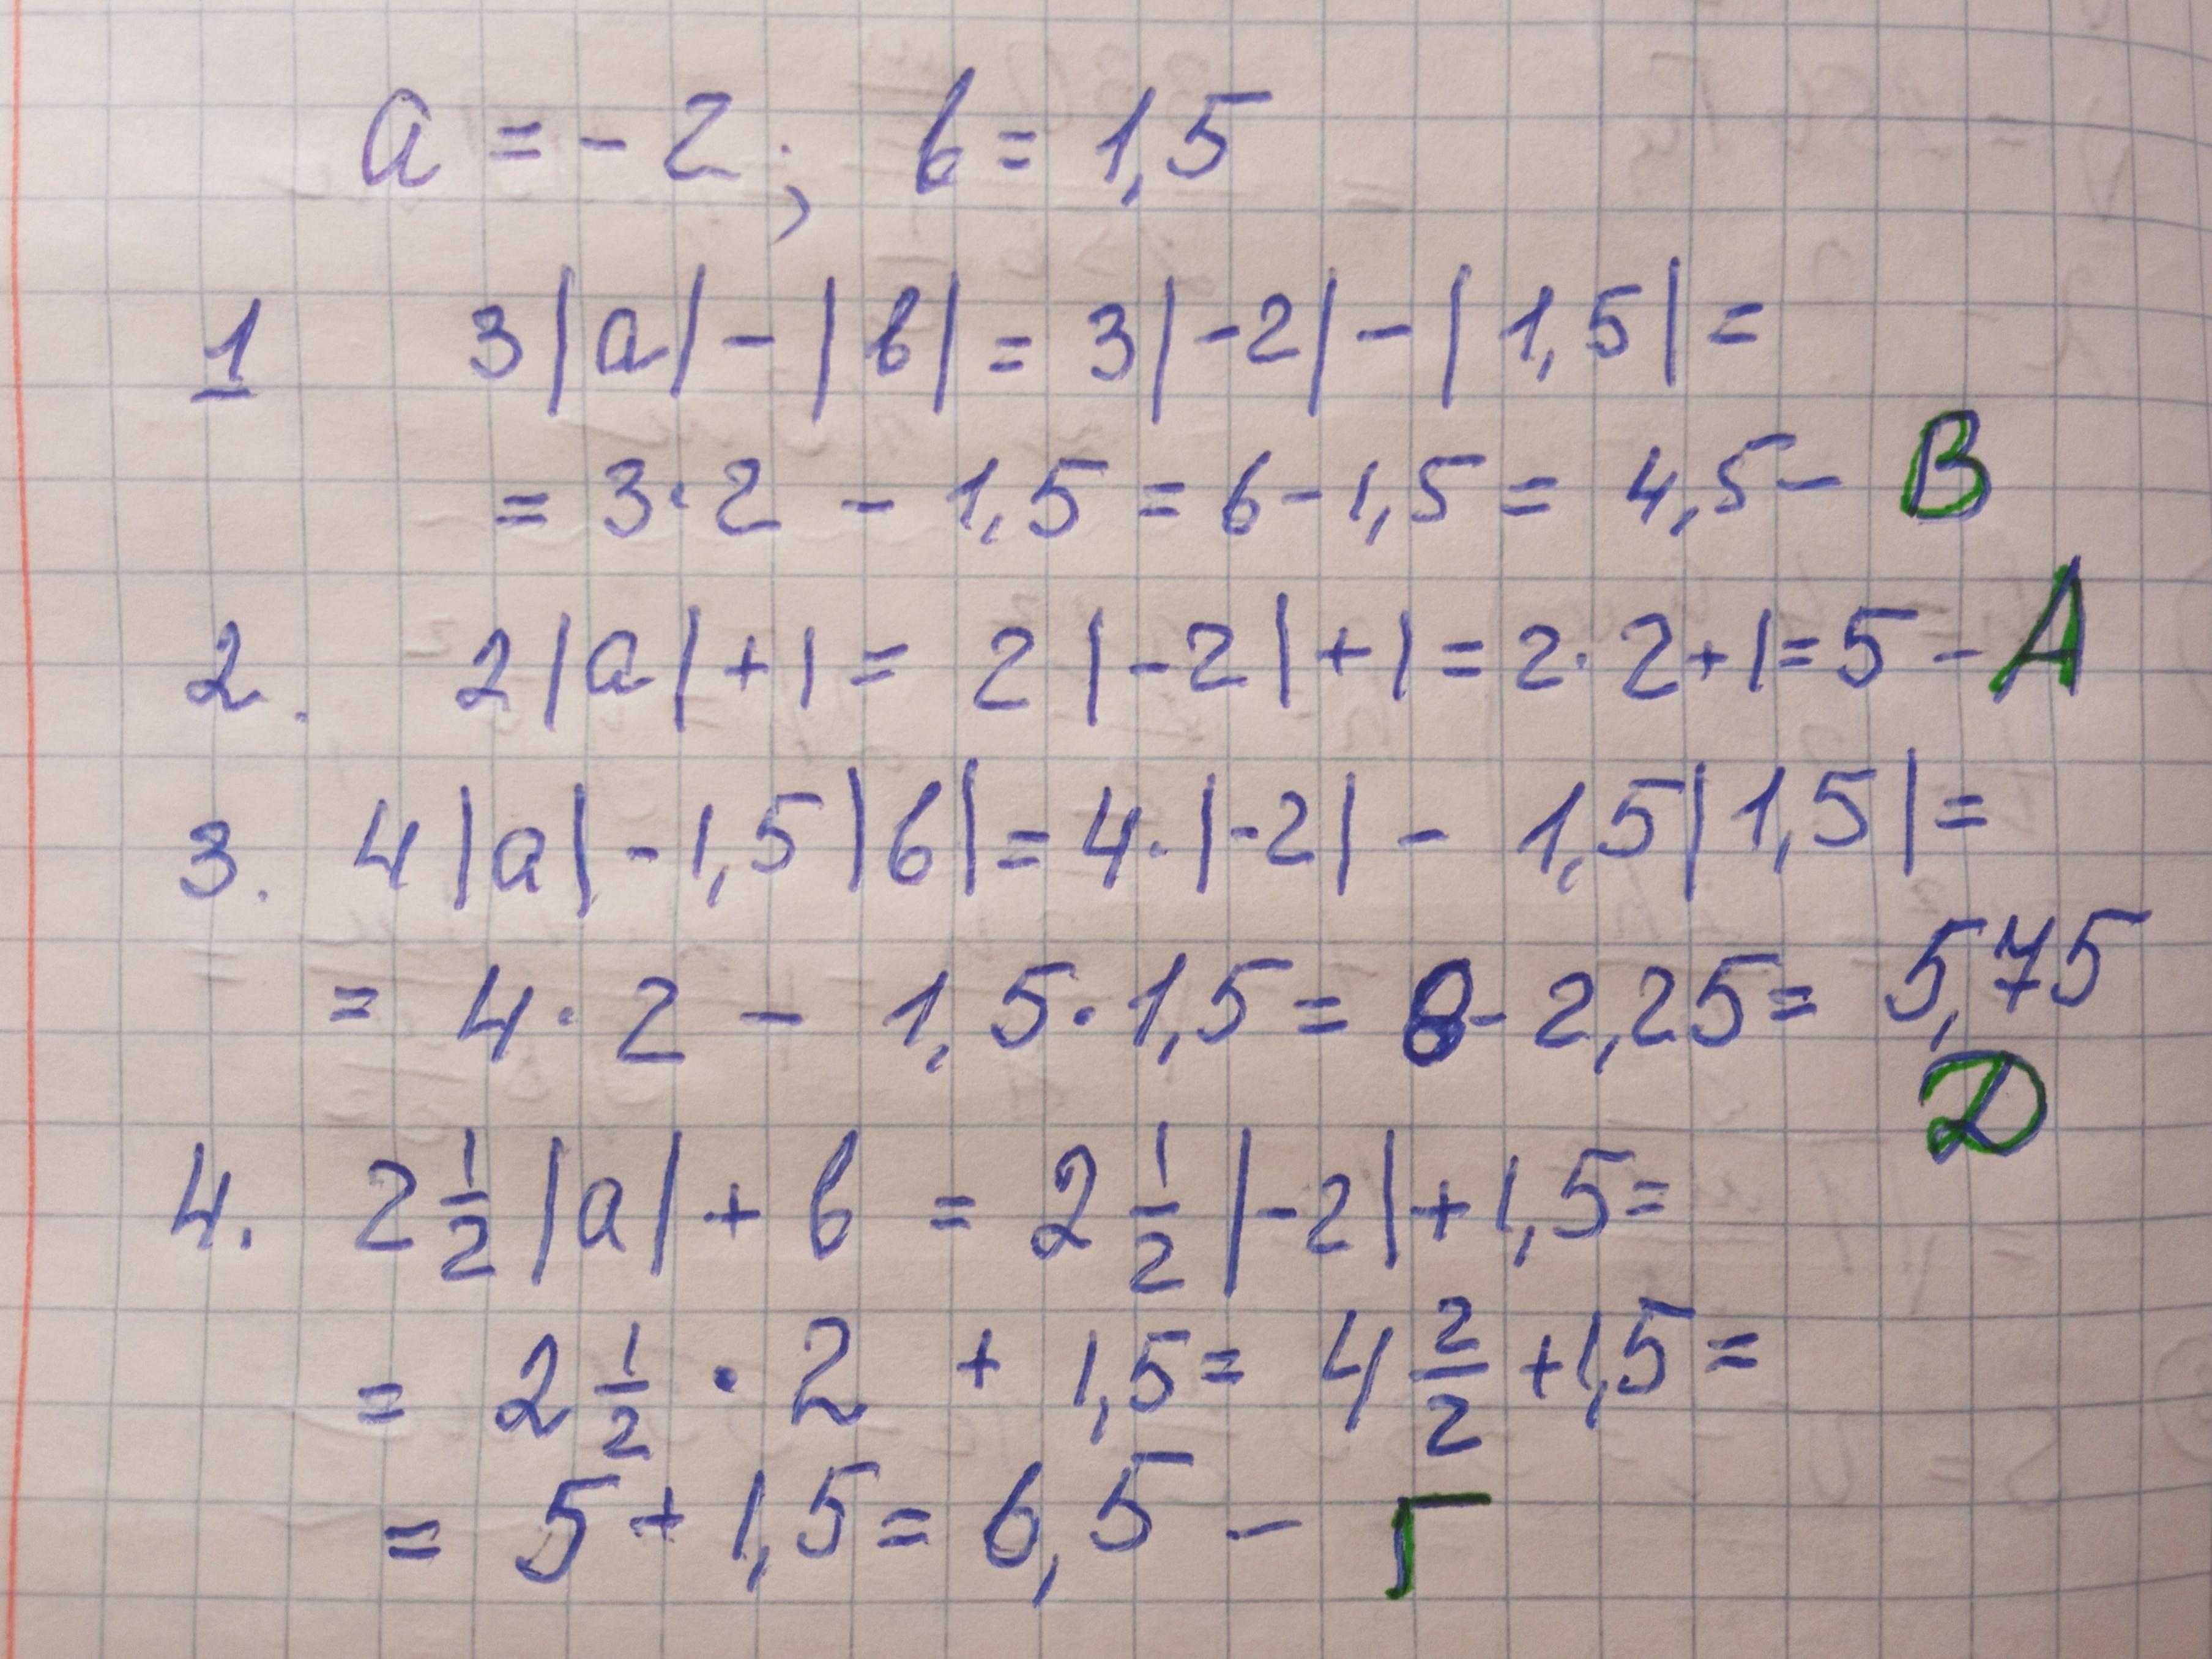 a = - 2; b = 1,5
1 3|a| - |b| = 3|-2| - |1,5| =
= 3·2 - 1,5 = 6 - 1,5 = 4,5 - В
2. 2|a| + 1 = 2|-2| + 1 = 2·2 + 1 = 5 - А
3. 4|a| - 1,5|b| = 4·|-2| - 1,5|1,5| =
= 4·2 - 1,5·1,5 = 8 - 2,25 = 5,75
D
4. 2 1/2 |a| + b = 2 1/2 |-2| + 1,5 =
= 2 1/2 · 2 + 1,5 = 4 2/2 + 1,5 =
= 5 + 1,5 = 6,5 - Г